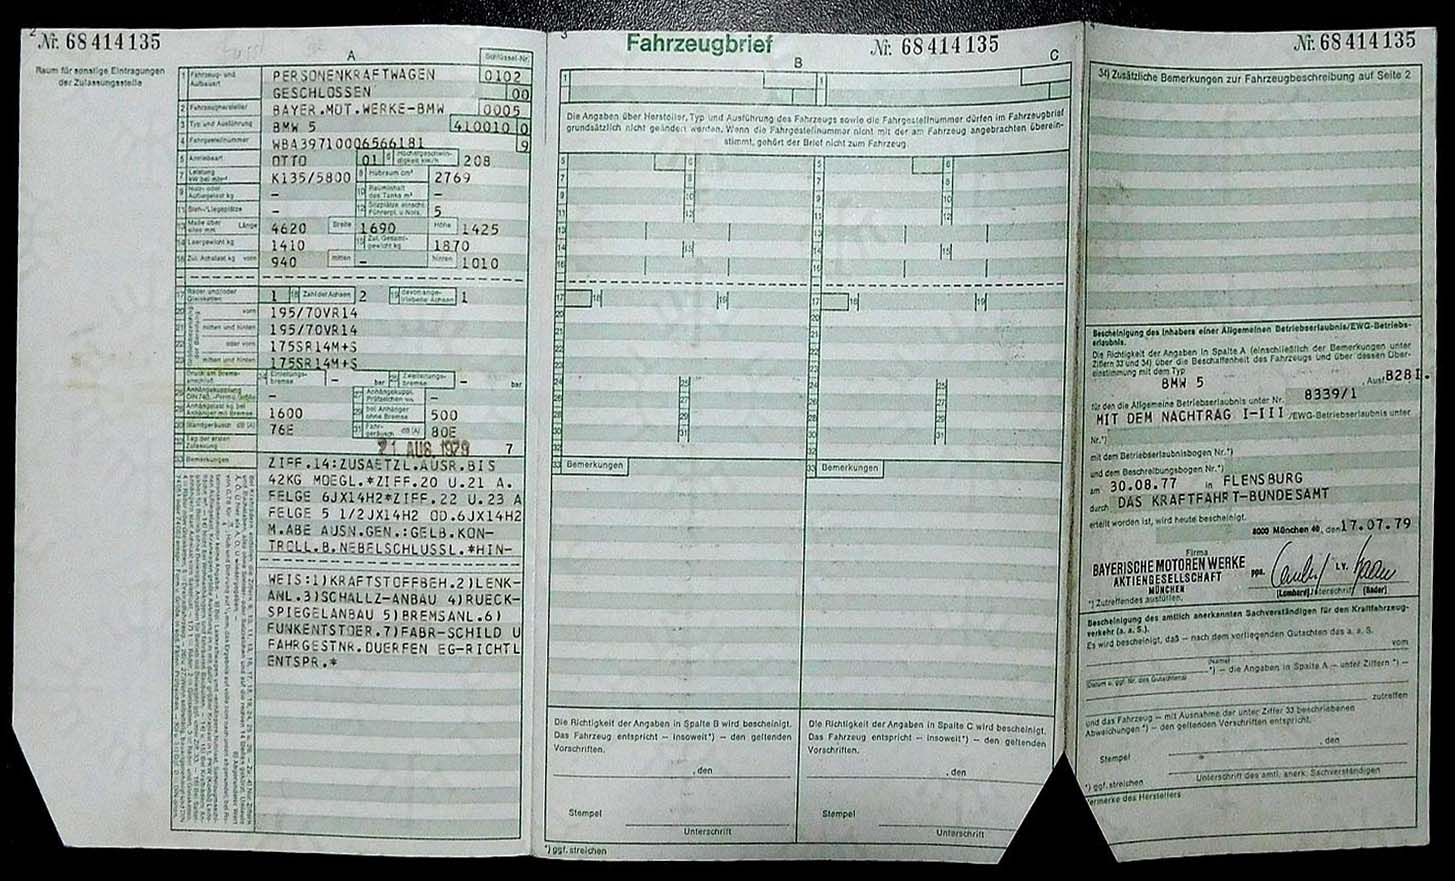 Nr. 68414135
Raum für sonstige Eintragungen
der Zulassungsstelle
A
Schlüssel-Nr.
1 Fahrzeug- und Aufbauart PERSONENKRAFTWAGEN 0102
GESCHLOSSEN 00
2 Fahrzeughersteller BAYER.MOT.WERKE-BMW 0005
3 Typ und Ausführung BMW 5 410010 0
4 Fahrgestellnummer WBA39710006566181 9
5 Antriebsart OTTO 01 6 Höchstgeschwindigkeit km/h 208
7 Leistung kW bei min K135/5800 8 Hubraum cm³ 2769
9 Nutz- oder Aufliegelast kg – 10 Rauminhalt des Tanks m³ –
11 Steh-/Liegeplätze – 12 Sitzplätze einschl. Führerpl. u. Nots. 5
13 Maße über alles mm Länge 4620 Breite 1690 Höhe 1425
14 Leergewicht kg 1410 15 Zul. Gesamtgewicht kg 1870
16 Zul. Achslast kg vorn 940 mitten – hinten 1010
17 Räder und/oder Gleisketten 1 18 Zahl der Achsen 2 19 davon angetriebene Achsen 1
20 vorn 195/70VR14
21 mitten und hinten 195/70VR14
22 oder vorn 175SR14M+S
23 mitten und hinten 175SR14M+S
Druck am Bremsanschluß 24 Einleitungsbremse – bar 25 Zweileitungsbremse – bar
26 Anhängekupplung – 27 Anhängekuppl. Prüfzeichen –
28 Anhängelast kg bei Anhänger mit Bremse 1600 29 bei Anhänger ohne Bremse 500
30 Standgeräusch dB (A) 76E 31 Fahrgeräusch dB (A) 80E
32 Tag der ersten Zulassung 21. AUG. 1979 7
33 Bemerkungen ZIFF.14:ZUSAETZL.AUSR.BIS
42KG MOEGL.*ZIFF.20 U.21 A.
FELGE 6JX14H2*ZIFF.22 U.23 A
FELGE 5 1/2JX14H2 OD.6JX14H2
M.ABE AUSN.GEN.:GELB.KON-
TROLL.B.NEBELSCHLUSSL.*HIN-
WEIS:1)KRAFTSTOFFBEH.2)LENK-
ANL.3)SCHALLZ-ANBAU 4)RUECK-
SPIEGELANBAU 5)BREMSANL.6)
FUNKENTSTOER.7)FABR-SCHILD U
FAHRGESTNR.DUERFEN EG-RICHTL
ENTSPR.*
Fahrzeugbrief
Nr. 68414135
B
C
Die Angaben über Hersteller, Typ und Ausführung des Fahrzeugs sowie die Fahrgestellnummer dürfen im Fahrzeugbrief
grundsätzlich nicht geändert werden. Wenn die Fahrgestellnummer nicht mit der am Fahrzeug angebrachten überein-
stimmt, gehört der Brief nicht zum Fahrzeug.
33 Bemerkungen
33 Bemerkungen
Die Richtigkeit der Angaben in Spalte B wird bescheinigt.
Das Fahrzeug entspricht – insoweit*) – den geltenden
Vorschriften.
, den
Stempel
Unterschrift
*) ggf. streichen
Die Richtigkeit der Angaben in Spalte C wird bescheinigt.
Das Fahrzeug entspricht – insoweit*) – den geltenden
Vorschriften.
, den
Stempel
Unterschrift
Nr. 68414135
34) Zusätzliche Bemerkungen zur Fahrzeugbeschreibung auf Seite 2
Bescheinigung des Inhabers einer Allgemeinen Betriebserlaubnis/EWG-Betriebs-
erlaubnis.
Die Richtigkeit der Angaben in Spalte A (einschließlich der Bemerkungen unter
Ziffern 33 und 34) über die Beschaffenheit des Fahrzeugs und über dessen Über-
einstimmung mit dem Typ
BMW 5 , Ausf. B28I.
für den die Allgemeine Betriebserlaubnis unter Nr. 8339/1
MIT DEM NACHTRAG I-III /EWG-Betriebserlaubnis unter
Nr.*)
mit dem Betriebserlaubnisbogen Nr.*)
und dem Beschreibungsbogen Nr.*)
am 30.08.77 in FLENSBURG
durch DAS KRAFTFAHRT-BUNDESAMT
erteilt worden ist, wird heute bescheinigt.
8000 München 40, den 17.07.79
Firma
BAYERISCHE MOTOREN WERKE
AKTIENGESELLSCHAFT
MÜNCHEN
ppa. i.V.
(Lombard) Unterschrift (Bader)
*) Zutreffendes ausfüllen.
Bescheinigung des amtlich anerkannten Sachverständigen für den Kraftfahrzeug-
verkehr (a. a. S.).
Es wird bescheinigt, daß – nach dem vorliegenden Gutachten des a. a. S.
vom
(Name)
*) – die Angaben in Spalte A – unter Ziffern *) –
Datum u. ggf. Nr. des Gutachtens)
zutreffen
und das Fahrzeug – mit Ausnahme der unter Ziffer 33 beschriebenen
Abweichungen *) – den geltenden Vorschriften entspricht.
, den
Stempel
Unterschrift des amtl. anerk. Sachverständigen
*) ggf. streichen
Vermerke des Herstellers